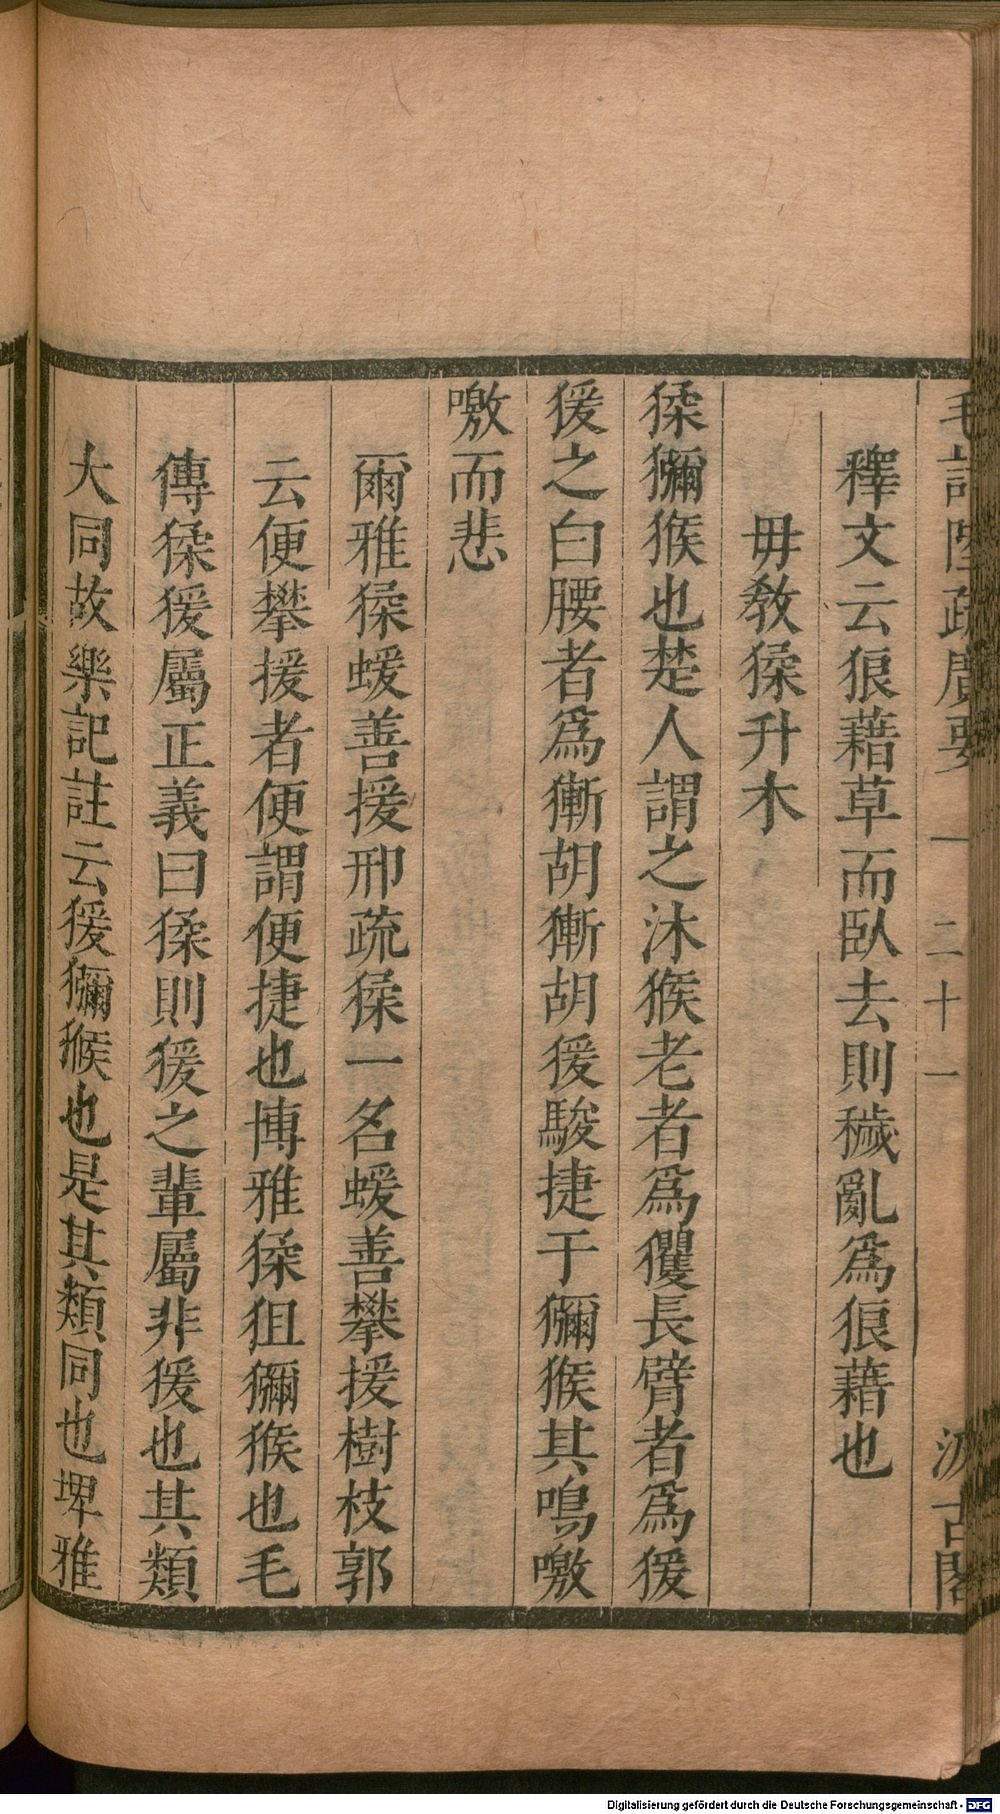 毛詩陸疏廣要 一 二十一 汲古閣
釋文云狼藉草而臥去則穢亂爲狼藉也
毋敎猱升木
猱獼猴也楚人謂之沐猴老者爲玃長臂者爲猨
猨之白腰者爲獑胡獑胡猨駿捷于獼猴其鳴噭
噭而悲
爾雅猱蝯善援邢疏猱一名蝯善攀援樹枝郭
云便攀援者便謂便捷也博雅猱狙獼猴也毛
傳猱猨屬正義曰猱則猨之輩屬非猨也其類
大同故樂記註云猨獼猴也是其類同也埤雅
Digitalisierung gefördert durch die Deutsche Forschungsgemeinschaft - DFG